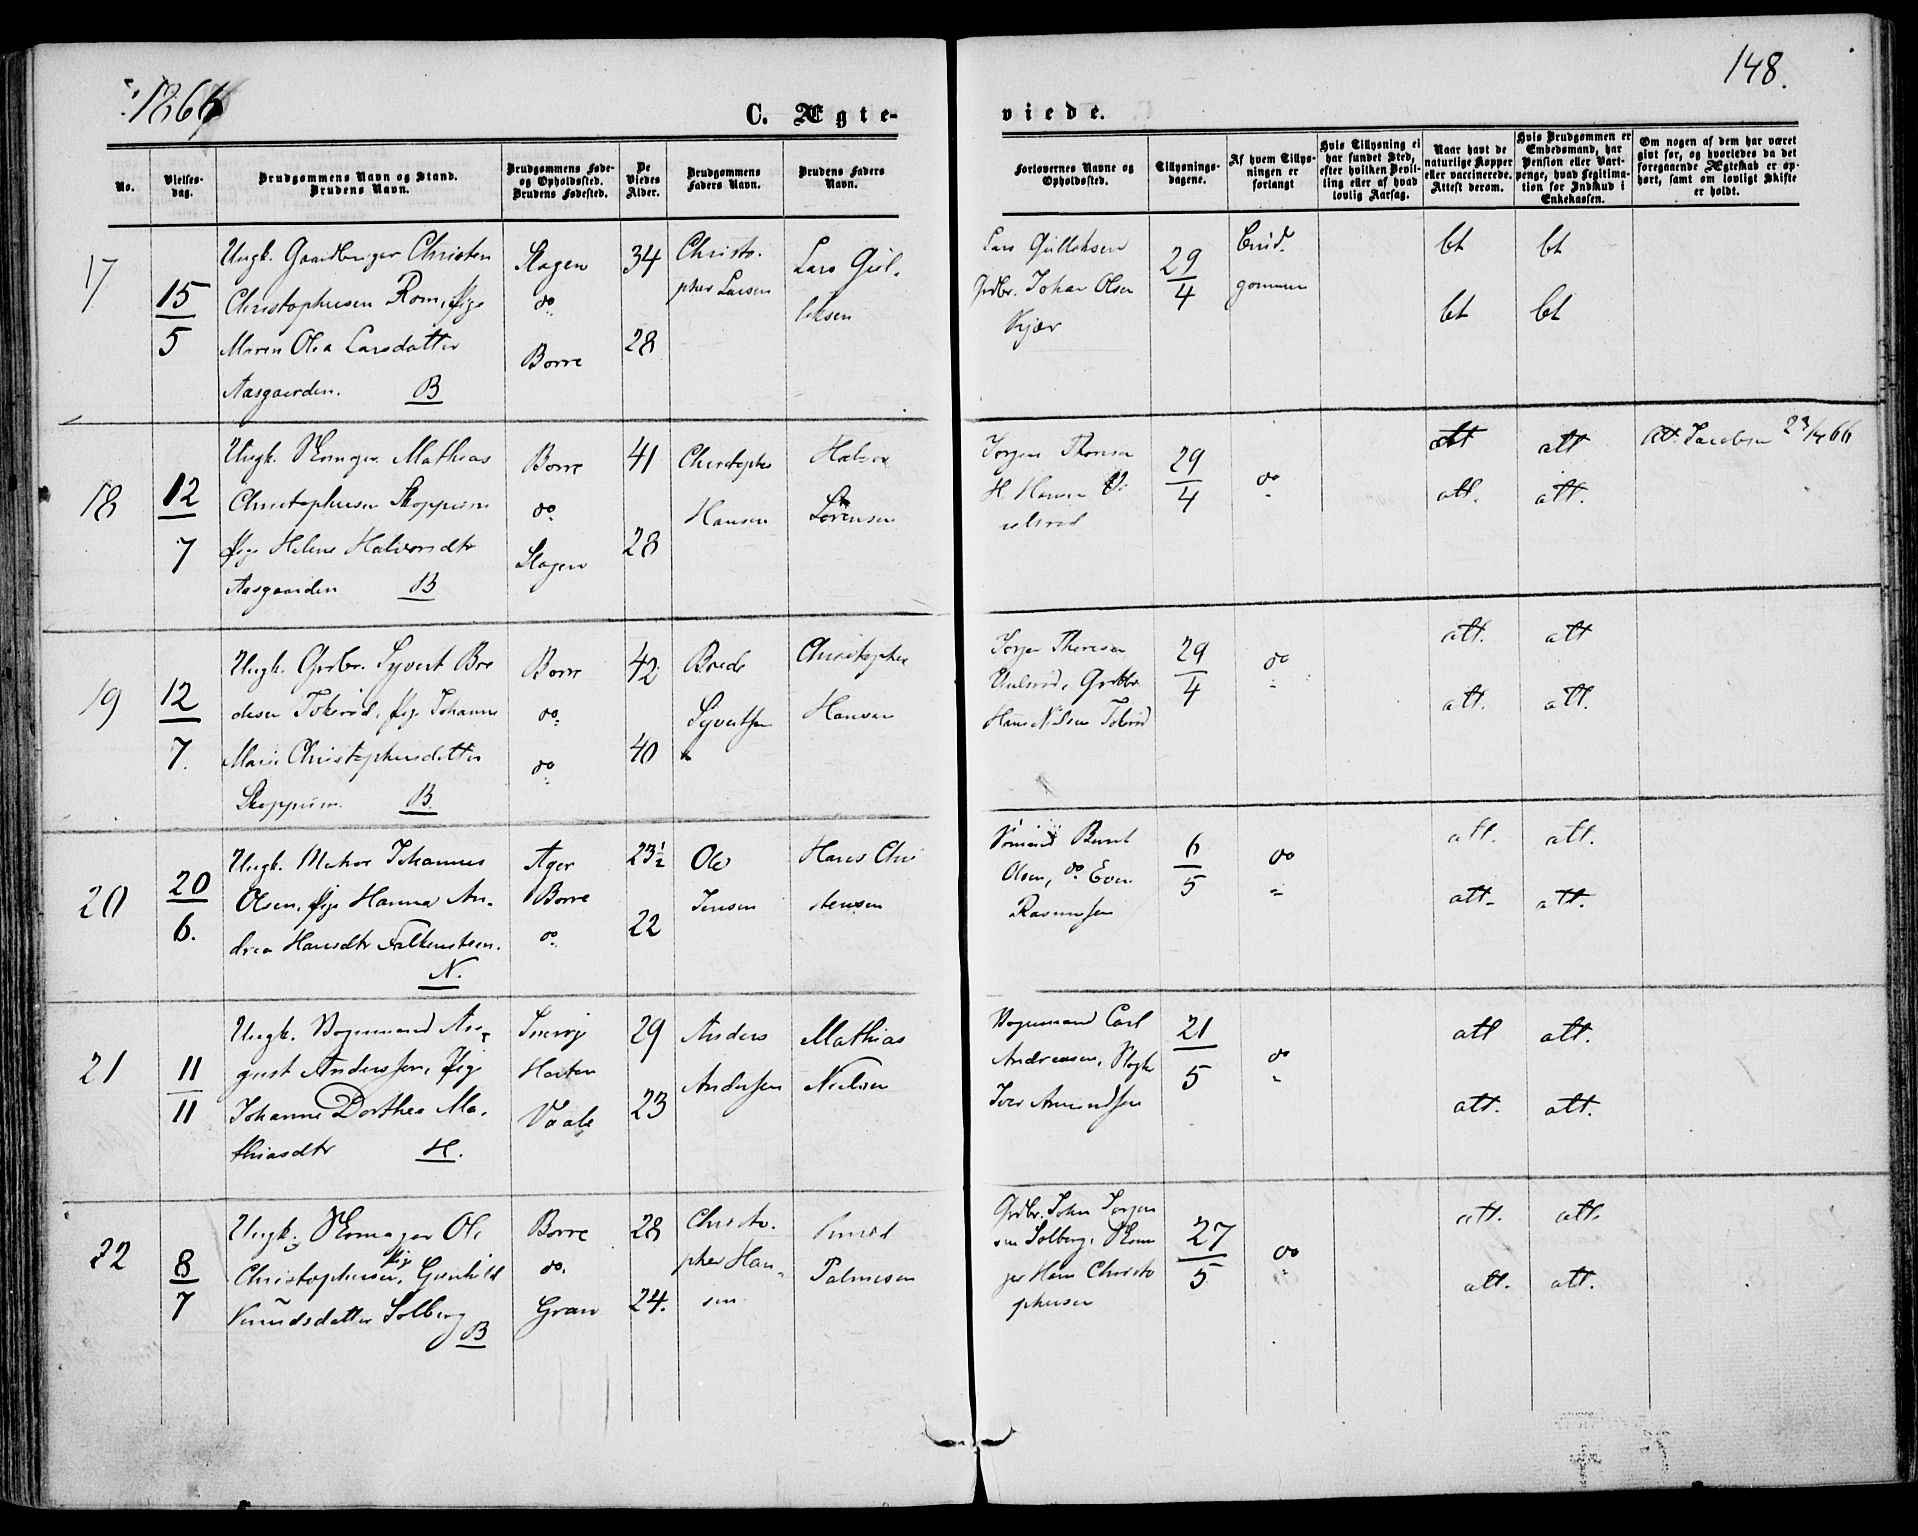 1866
C. Ægte-
viede.
148.
No.
Vielses-
dag.
Brudgommens Navn og Stand.
Brudens Navn.
Brudgommens Føde-
og Opholdssted.
Brudens Fødested.
De
Viedes
Alder.
Brudgommens
Faders Navn.
Brudens Faders
Navn.
Forlovernes Navne og
Opholdssted.
Tillysnings-
dagene.
Af hvem Tillys-
ningen er
forlangt
Hvis Tillysning ei
har fundet Sted,
efter hvilken Bevil-
ling eller af hvad
lovlig Aarsag.
Naar havt de
naturlige Kopper
eller vaccinerede.
Attest derom.
Hvis Brudgommen er
Embedsmand, har
Pension eller Vart-
penge, hvad Legitima-
tion for Indskud i
Enkekassen.
Om nogen af dem har været
givt før, og hvorledes da det
foregaaende Ægteskab er op-
hørt, samt om lovligt Skifte
er holdt.
17
15/5
Ungk. Gaardbruger Christen
Christophersen Rom, Pige
Maren Olea Larsdatter
Aasgaarden. B
Slagen
do
Borre
34
28
Christo-
pher Larsen
Lars Gul-
liksen
Lars Gulliksen
Grdbr. Johan Olsen
Kjær
29/4
Brud-
gommen
bt
bt
bt
bt
18
12/7
Ungk. Skomager Mathias
Christophersen Skoppum
Pige Helene Halvorsdtr
Aasgaarden B
Borre
do
Slagen
41
28
Christopher
Hansen
Halvor
Sørensen
Jørgen Thoresen
H. Hansen
29/4
do
att
att
att.
att.
Att. Jacobsen 23/4 66
19
12/7.
Ungk. Grdbr. Syvert Bre
desen Tokerød, Pige Johanne
Marie Christophersdatter
Skoppum. B.
Borre
do
do
42
40
Brede
Syvertsen
Christopher
Hansen
Jørgen Thoresen
Hans Nilsen
29/4
do
att.
att
att.
att.
20
20/6.
Ungk. Matros Johannes
Olsen, Pige Hanna An-
drea Hansdtr Falkensteen.
N.
Ager
Borre
do
23½
22
Ole
Jensen
Hans Chri
stensen
Bernt
Olsen, do Even
Rasmussen
6/5
do
att.
att.
att.
att.
21
11/11
Ungk. Vognmand Au-
gust Anderssen, Pige
Johanne Dorthea Ma-
thiasdtr H.
Horten
Vaale
29
23
Anders
Andersen
Mathias
Nielsen
Vognmand Carl
Andreasen,
Iver Amundsen
21/5
do
att
att.
att.
att.
22
8/7
Ungk. Skomager Ole
Christophersen, Pige Gunhild
Knudsdatter Solberg
B
Borre
do.
Gran
28
24.
Christo-
pher Han-
sen
Knud
Palmesen
Grdbr. John Jørgen
sen Solberg, Skoma
ger Hans Christo
phersen
27/5
do
att.
att.
att.
att.